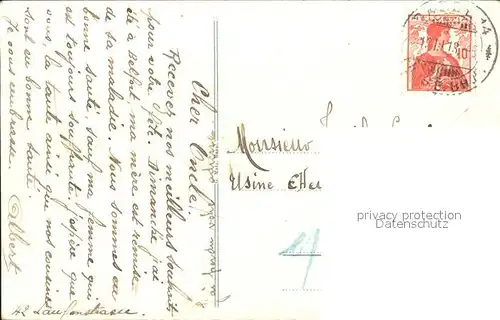 Cher Oncle!
Recevez nos meilleurs souhaits
pour votre fête. Dimanche j'ai
été à Belfort, ma mère est remise
de sa maladie. Nous sommes en
bonne santé, sauf ma femme qui
est toujours souffrante. J'espère que
vous, la tante ainsi que nos cousines
sont en bonne santé.
Je vous embrasse.
Albert
42 Laufenstrasse.
Monsieur
Usine
privacy protection
watermark